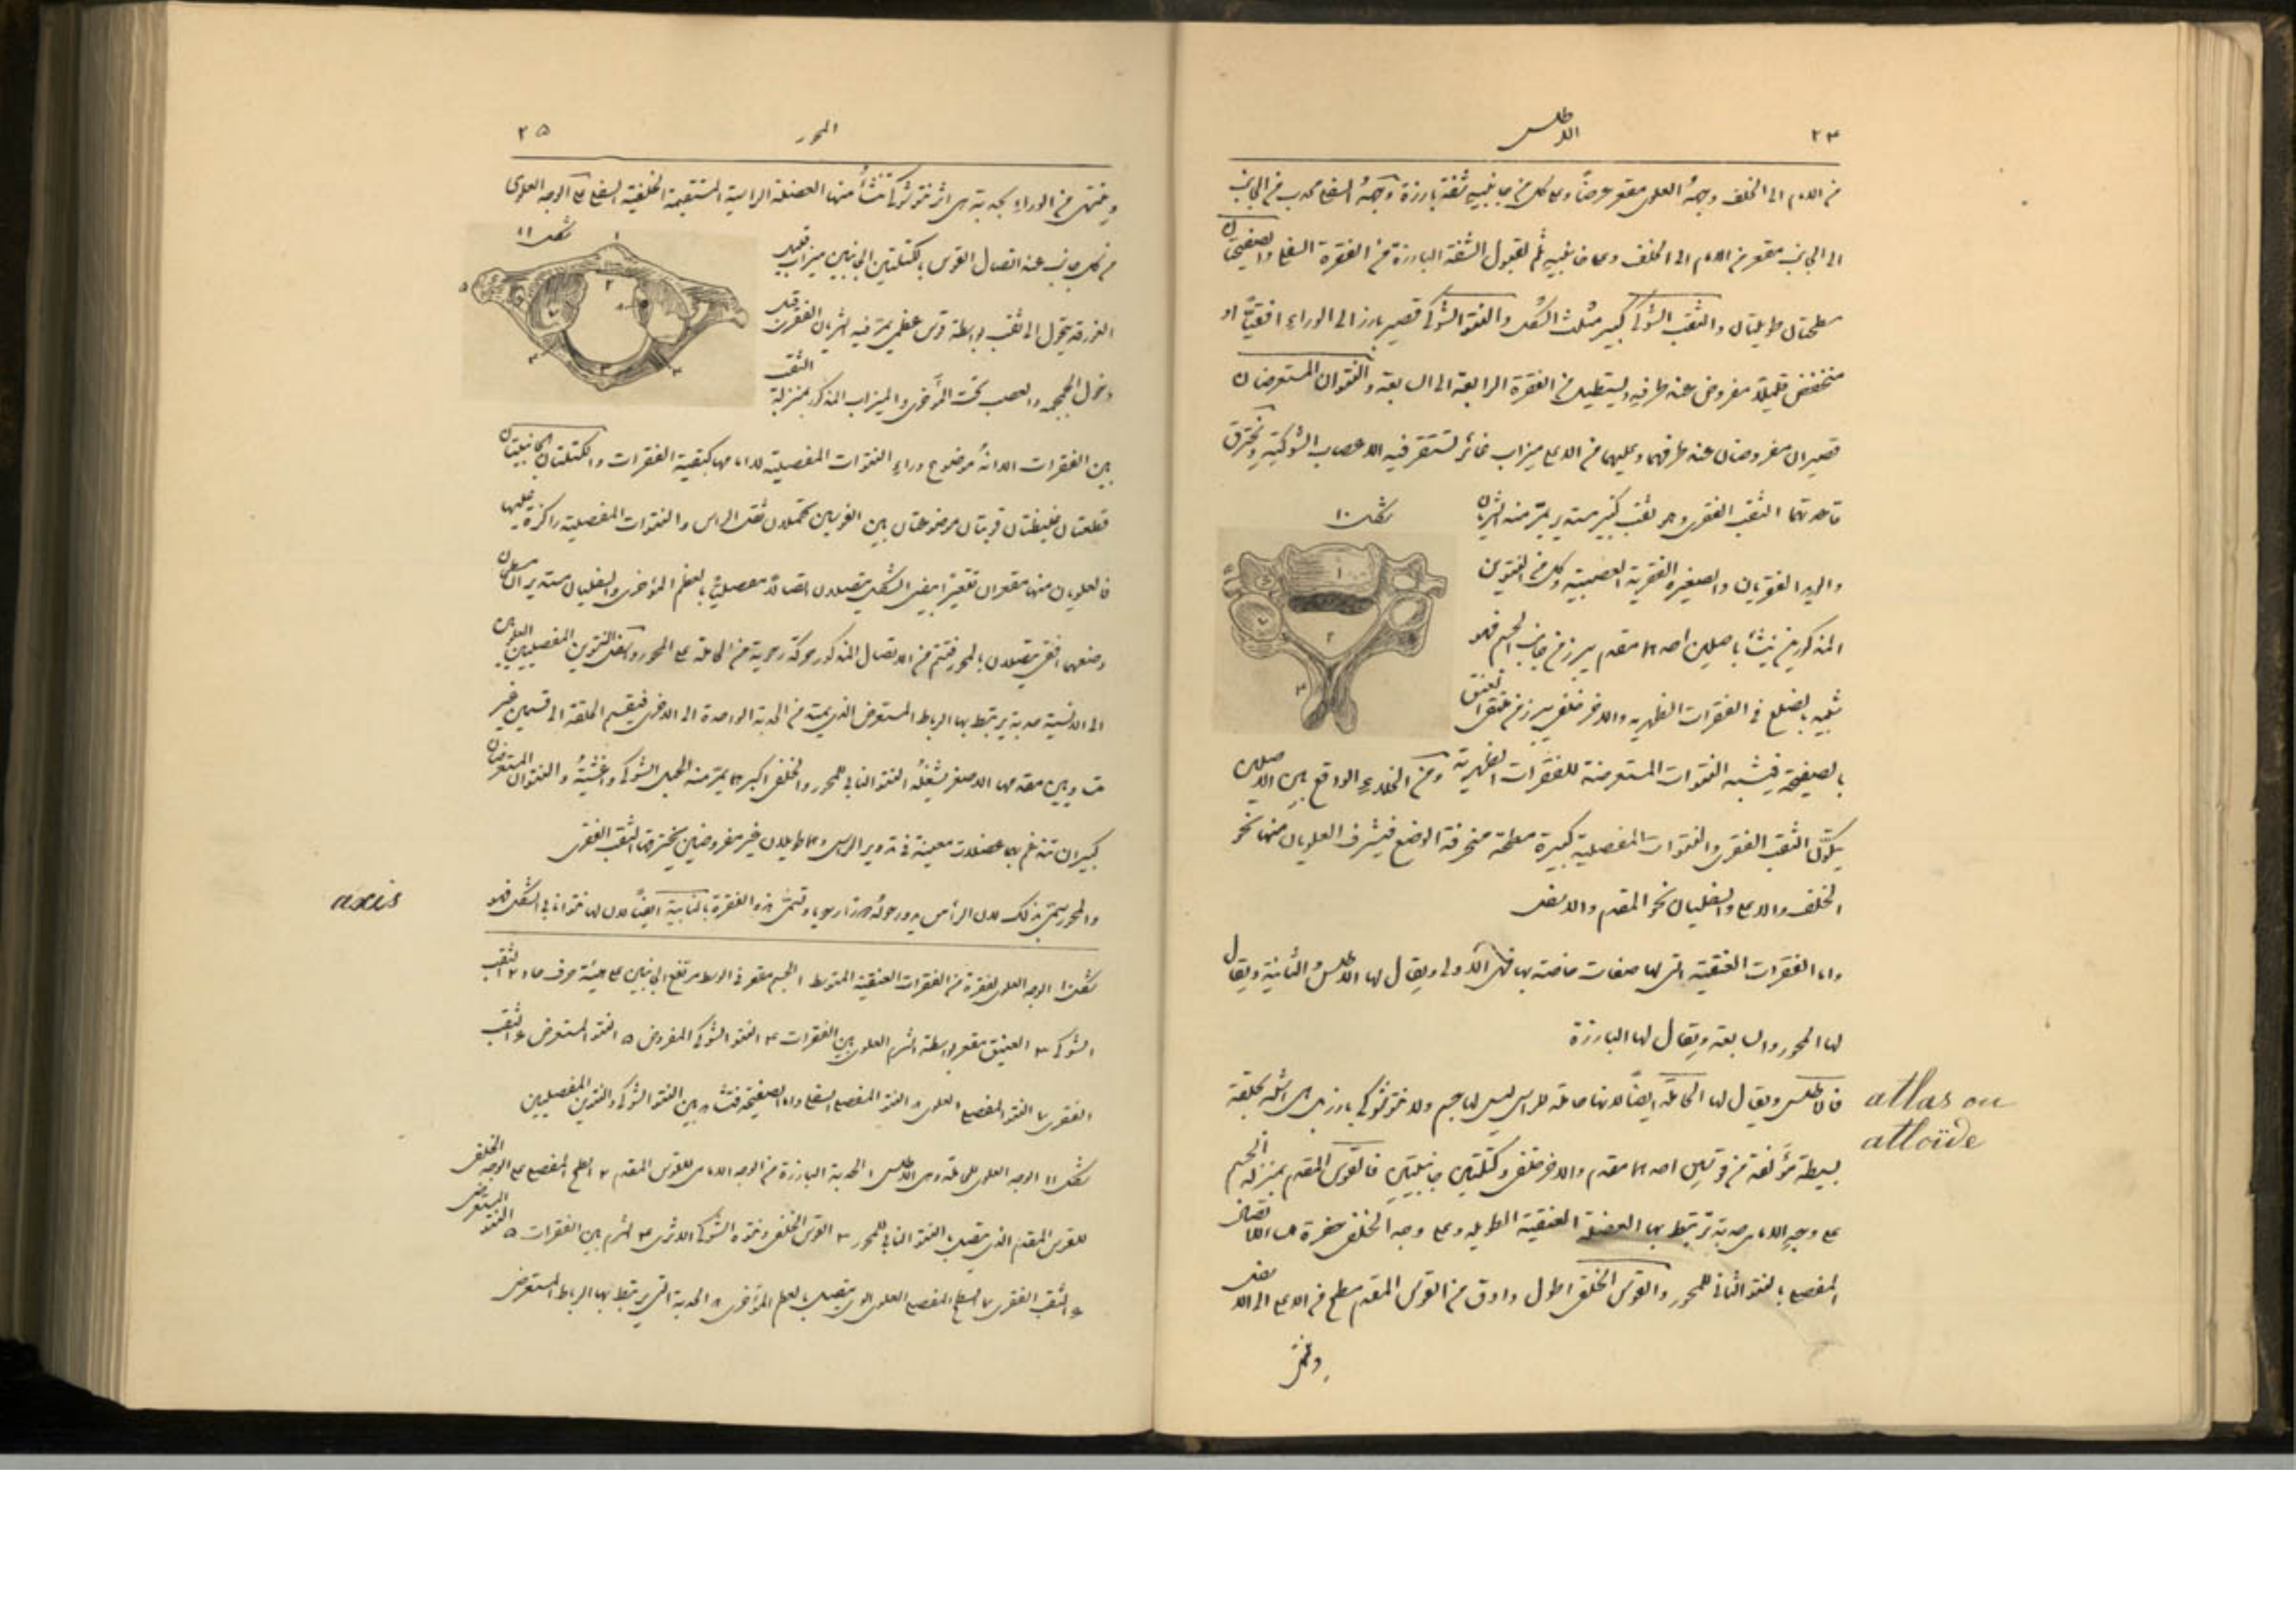 ٢٤
الاطلس
من الامام الى الخلف وجهه العلوى مقعر عرضًا وعلى كل من جانبيه شفة بارزة وجهه السفلى محدب من الجانب
الى الجانب مقعر من الامام الى الخلف وعلى جانبيه ثلم لقبول الشفة البارزة من الفقرة السفلى والصفيحتان
مسطحتان طويلتان والثقب الشوكى كبير مثلث الشكل والنتو الشوكى قصير بارز الى الوراء افقيًا او
منخفض قليلا مفروض عند طرفيه ويستطيل من الفقرة الرابعة الى السابعة والنتوان المستعرضان
قصيران مفروضان عند طرفهما وعليهما من الاعلى ميزاب غائر تستقر فيه الاعصاب الشوكية وتخترق
قاعدتهما الثقب الفقرى وهو ثقب كبير مستدير يمر منه الشريان
شكل ١٠
والوريد الفقريان والضفيرة الفقرية العصبية وكل من النتوين
المذكورين ينشأ باصلين احدهما مقدم يبرز من جانب الجسم فهو
شبيه بالضلع فى الفقرات الظهرية والاخر خلفى يبرز من عند العنق
بالصفيحة فيشبه النتوات المستعرضة للفقرات الظهرية ومن الخلاء الواقع بين الاصلين
يتكون الثقب الفقرى والنتوات المفصلية كبيرة مسطحة منحرفة الوضع فيشرف العلويان منها نحو
الخلف والاعلى والسفليان نحو المقدم والاسفل
واما الفقرات العنقية التى لها صفات خاصة بها فهى الاولى ويقال لها الاطلس والثانية ويقال
لها المحور والسابعة ويقال لها البارزة
فالاطلس ويقال لها الحاملة ايضًا لانها حاملة للراس ليس لها جسم ولا نتو شوكى بارز بل هى اشبه بحلقة
atlas ou
atloïde
بسيطة مؤلفة من قوسين احدهما مقدم والاخر خلفى وكتلتين جانبيتين فالقوس المقدم بمنزلة الجسم
على وجهه الامامى حدبة ترتبط بها العضلة العنقية الطويلة وعلى وجهه الخلفى حفرة هى للاتصال
المفصلى بالنتو النابى للمحور والقوس الخلفى اطول وادق من القوس المقدم مسطح من الاعلى الى الاسفل
وينتهى
المحور
٢٥
وينتهى من الوراء بحدبة هى اثر نتو شوكى تنشأ منها العضلة الراسية المستقيمة الخلفية السفلى على الوجه العلوى
شكل ١١
من كل جانب عند اتصال القوس بالكتلتين الجانبيتين ميزاب قليل
الغور قد يتحول الى ثقب بواسطة قوس عظمى يمر فيه الشريان الفقرى قبل
دخول الجمجمه والعصب تحت المؤخرى والميزاب المذكور بمنزلة الثقب
بين الفقرات الا انه موضوع وراء النتوات المفصلية لا امامها كبقية الفقرات والكتلتان الجانبيتان
قطعتان غليظتان قويتان موضوعتان بين القوسين تحملان ثقل الراس والنتوات المفصلية راكزة عليها
فالعلويان منها مقعران تقعيرًا بيضى الشكل يتصلان اتصالا مفصليا بالعظم المؤخرى والسفليان مستديران مسطحان
وضعهما افقى يتصلان بالمحور فتتم من الاتصال المذكور حركة رحوية من الحاملة على المحور واسفل النتوين المفصليين العلويين
الى الانسية حدبة يرتبط بها الرباط المستعرض الذى يمتد من الحدبة الواحدة الى الاخرى فيقسم الحلقة الى قسمين غير
متساويين مقدمهما الاصغر يشغله النتو النابى للمحور والخلفى اكبرهما يمر منه الحبل الشوكى واغشيته والنتوان المستعرضان
كبيران تندغم بهما عضلات معينة فى تدوير الراس وهما طويلان غير مفروضين يخترقهما الثقب الفقرى
والمحور سمى بذلك لان الراس يدور حوله دورانا رحويا وتسمى هذه الفقرة بالنابية ايضًا لان لها نتوا نابى الشكل فهو
axis
شكل ١٠ الوجه العلوى لفقرة من الفقرات العنقية المتوسط ١ الجسم مقعر فى الوسط مرتفع الجانبين على هيئة حرف حاد ٢ الثقب
الشوكى ٣ العنيق مقعر بواسطة الشرم العلوى بين الفقرات ٤ النتو الشوكى المفروض ٥ النتو المستعرض ٦ الثقب
الفقرى ٧ النتو المفصلى العلوى ٨ النتو المفصلى السفلى واما الصفيحة فتشاهد بين النتو الشوكى والنتوين المفصليين
شكل ١١ الوجه العلوى للحاملة وهى الاطلس ١ الحدبة البارزة من الوجه الامامى للقوس المقدم ٢ السطح المفصلى على الوجه الخلفى
للقوس المقدم الذى يتصل بالنتو النابى للمحور ٣ القوس الخلفى ونتوه الشوكى الاثرى ٤ الشرم بين الفقرات ٥ النتو المستعرض
٦ الثقب الفقرى ٧ السطح المفصلى العلوى الذى يتصل بالعظم المؤخرى ٨ الحدبة التى يرتبط بها الرباط المستعرض